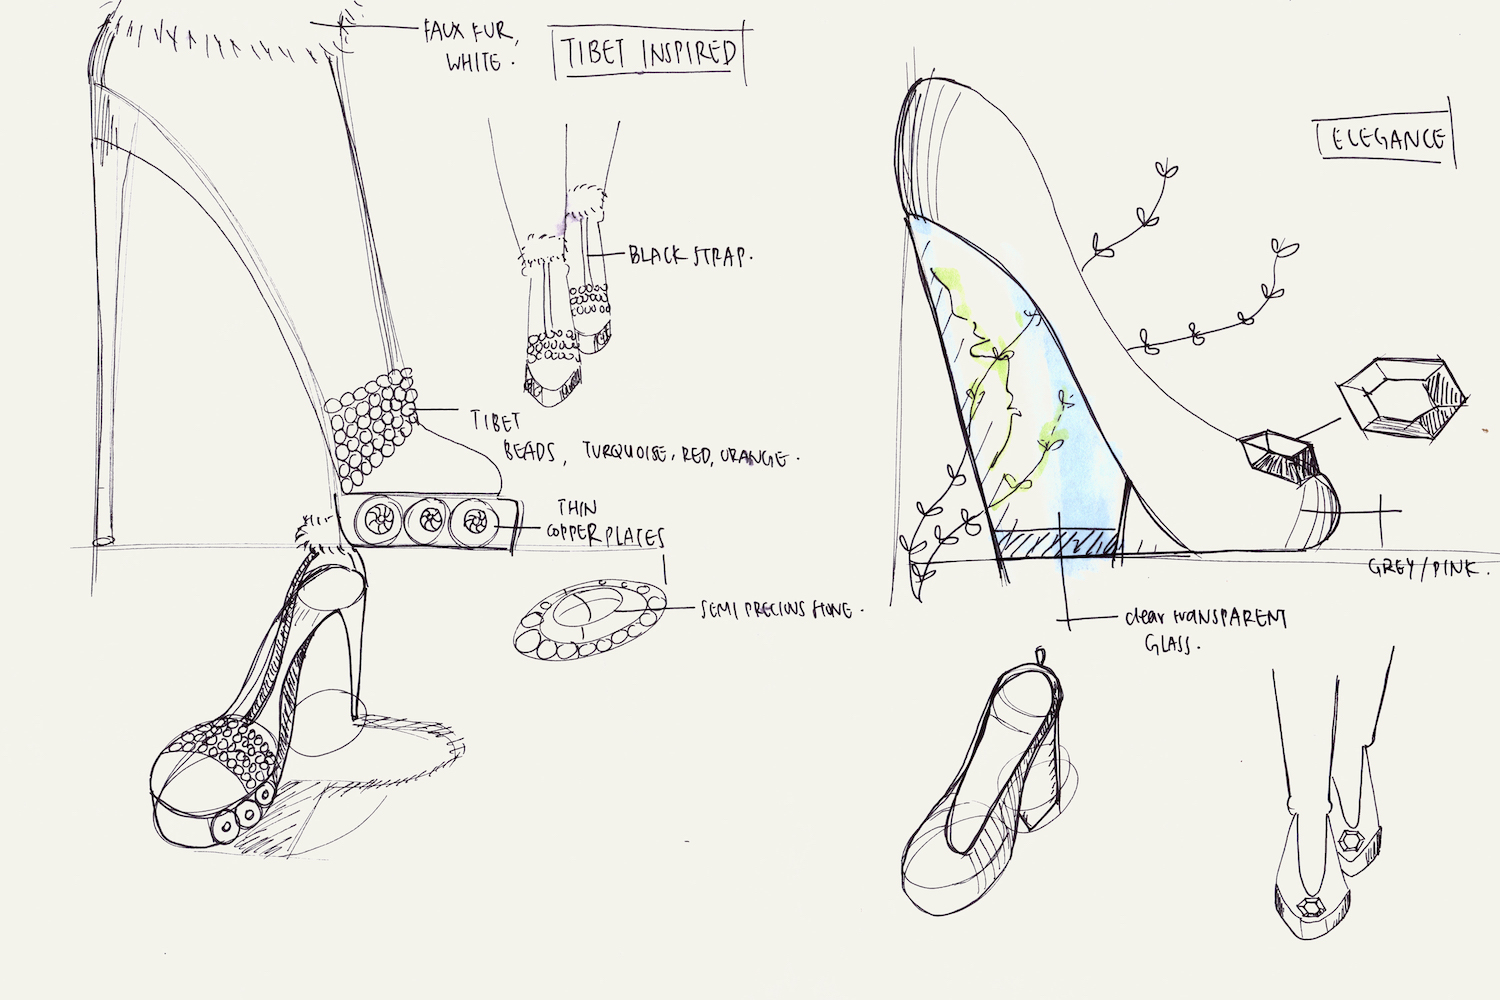 FAUX FUR,
WHITE.
TIBET INSPIRED
BLACK STRAP.
TIBET
BEADS, TURQUOISE, RED, ORANGE.
THIN
COPPER PLATES
SEMI PRECIOUS STONE.
ELEGANCE
GREY/PINK.
clear tRANSPARENT
GLASS.